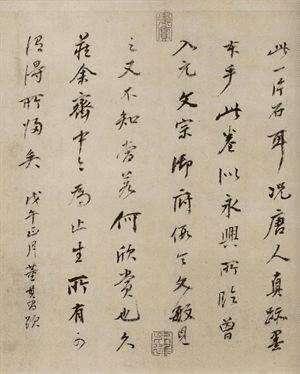 此一片石耳况唐人真跡墨
本乎此卷似永興所臨曾
入元文宗御府假令文敏見
之又不知當若何欣賞也久
藏余齋中今為止生所有可
謂得所歸矣戊午正月董其昌跋